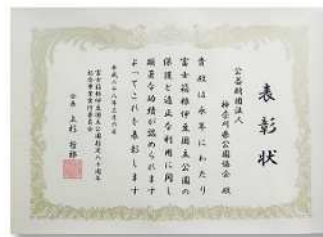 表彰状
公益財団法人
神奈川県公園協会 殿
貴殿は永年にわたり
富士箱根伊豆国立公園の
保護と適正な利用に関し
顕著な功績が認められます
よってこれを表彰します
平成二十八年三月六日
富士箱根伊豆国立公園指定八十周年
記念事業実行委員会
会長 上杉 哲郎